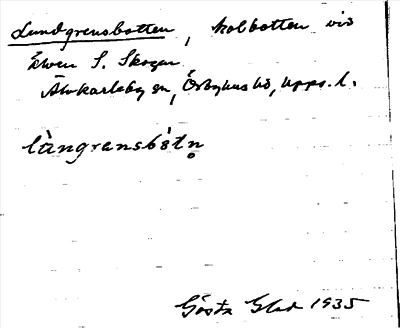 Lundgrensbotten, kolbotten vid
Även S. Skogen.
Älvkarleby sn, Örbyhus hd, Upps. l.
làngrensbòtn̥
Gösta Glad 1935